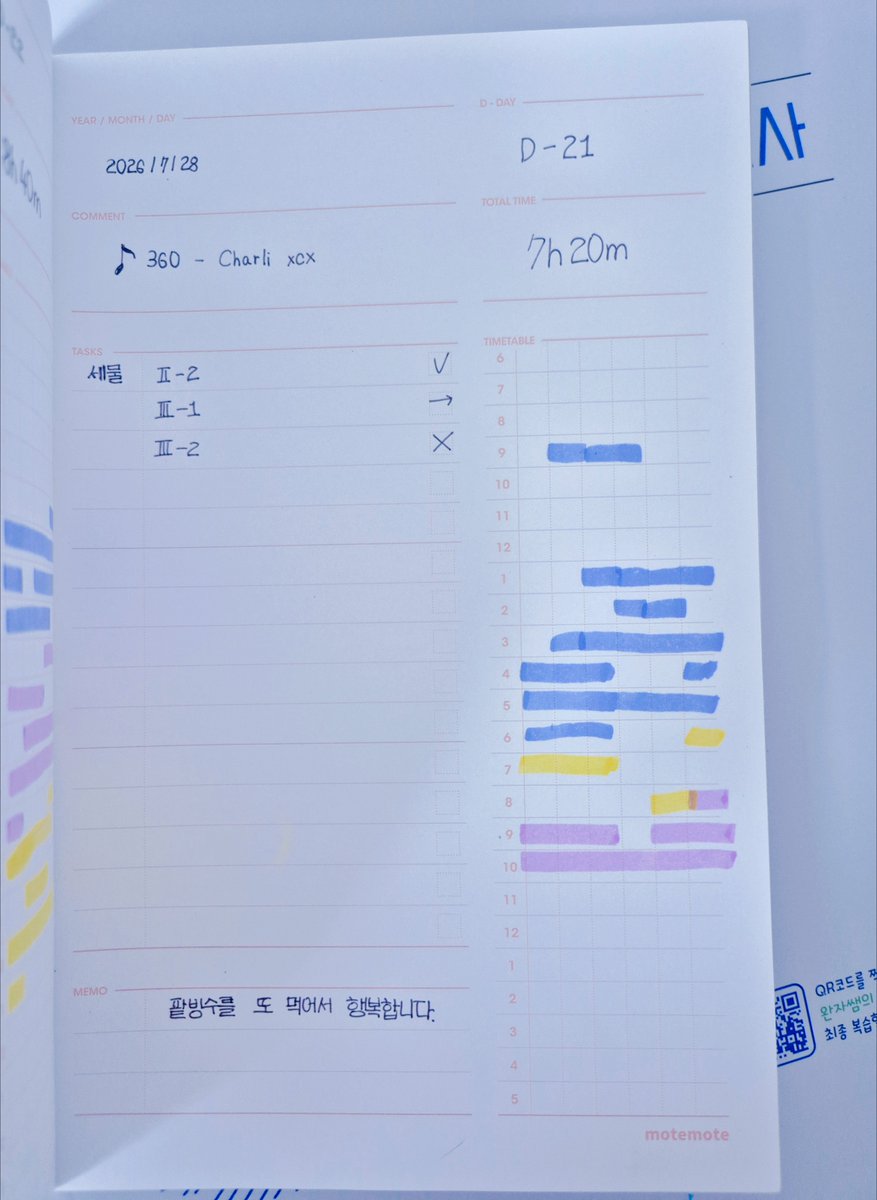 YEAR / MONTH / DAY
2026/7/28
D-DAY
D-21
COMMENT
♪ 360 - Charli xcx
TOTAL TIME
7h 20m
TASKS
세물 Ⅱ-2 ✓
Ⅲ-1 →
Ⅲ-2 ×
TIMETABLE
6
7
8
9
10
11
12
1
2
3
4
5
6
7
8
9
10
11
12
1
2
3
4
5
MEMO
팥빙수를 또 먹어서 행복합니다.
motemote
사
QR코드를
완자쌤의
최종
40m